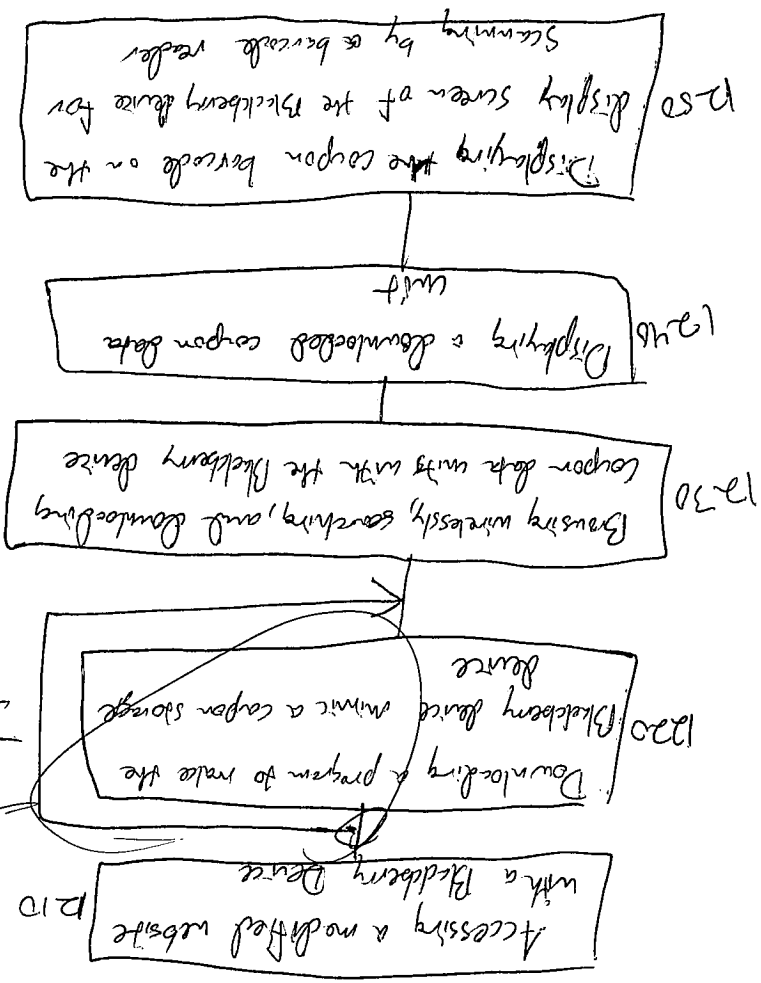 Accessing a modified website
with a Blackberry Device
1210
Downloading a program to make the
Blackberry device mimic a coupon storage
device
1220
Browsing wirelessly, searching, and downloading
coupon data units with the Blackberry device
1230
Displaying a downloaded coupon data
unit
1240
Displaying the coupon barcode on the
display screen of the Blackberry device for
scanning by a barcode reader
1250